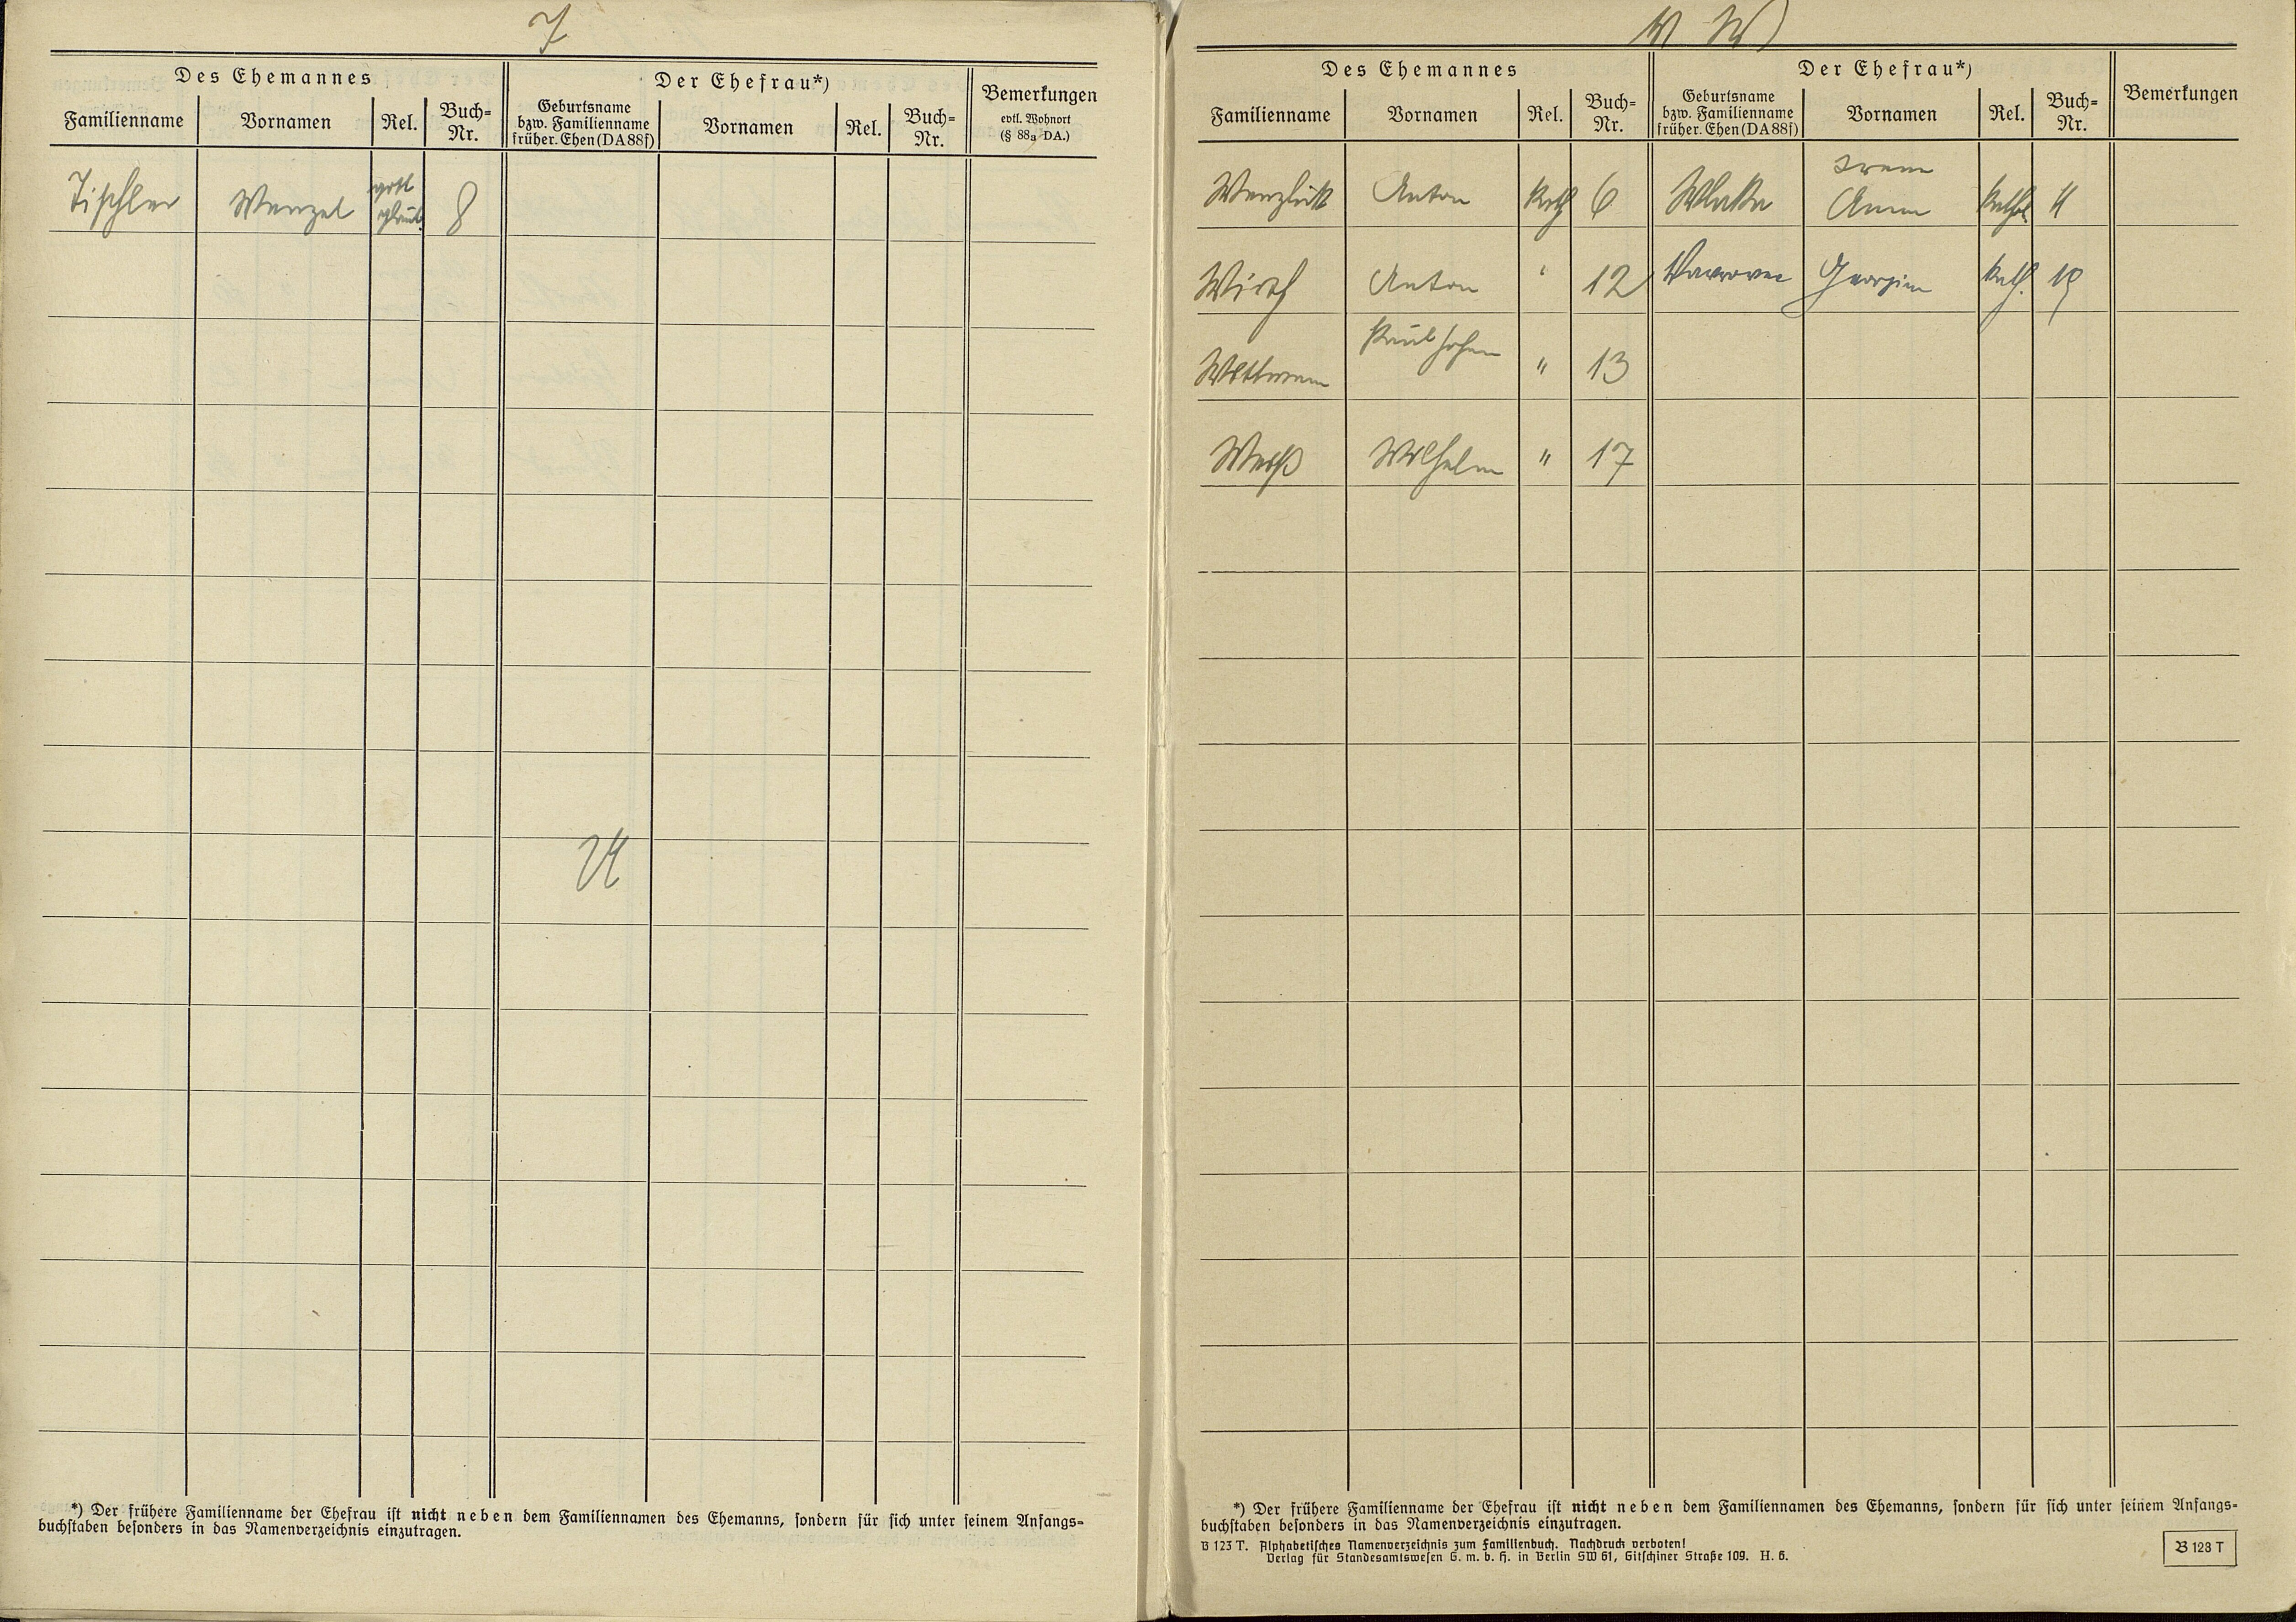 T
Des Ehemannes
Der Ehefrau*)
Bemerkungen
evtl. Wohnort
(§ 88a DA.)
Familienname
Vornamen
Rel.
Buch-
Nr.
Geburtsname
bzw. Familienname
früher. Ehen (DA 88f)
Vornamen
Rel.
Buch-
Nr.
Tischler Wenzel gott 8
U
*) Der frühere Familienname der Ehefrau ist nicht neben dem Familiennamen des Ehemanns, sondern für sich unter seinem Anfangs-
buchstaben besonders in das Namenverzeichnis einzutragen.
V W
Des Ehemannes
Der Ehefrau*)
Bemerkungen
Familienname
Vornamen
Rel.
Buch-
Nr.
Geburtsname
bzw. Familienname
früher. Ehen (DA 88f)
Vornamen
Rel.
Buch-
Nr.
Anton Kath 6 Anna Kathol 4
Wirth Anton " 12 Kath.
" 13
Weiß Wilhelm " 17
*) Der frühere Familienname der Ehefrau ist nicht neben dem Familiennamen des Ehemanns, sondern für sich unter seinem Anfangs-
buchstaben besonders in das Namenverzeichnis einzutragen.
B 123 T. Alphabetisches Namenverzeichnis zum Familienbuch. Nachdruck verboten!
Verlag für Standesamtswesen G. m. b. H. in Berlin SW 61, Gitschiner Straße 109. H. 6.
B 123 T